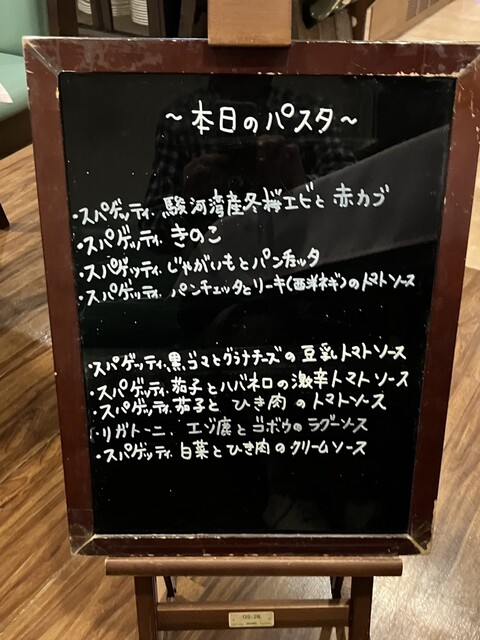 ~本日のパスタ~
・スパゲッティ. 駿河湾産冬桜エビと赤カブ
・スパゲッティ. きのこ
・スパゲッティ. じゃがいもとパンチェッタ
・スパゲッティ. パンチェッタとリーキ(西洋ネギ)のトマトソース
・スパゲッティ. 黒ゴマとグラナチーズの豆乳トマトソース
・スパゲッティ. 茄子とハバネロの激辛トマトソース
・スパゲッティ. 茄子とひき肉のトマトソース
・リガトーニ、エゾ鹿とゴボウのラグーソース
・スパゲッティ. 白菜とひき肉のクリームソース